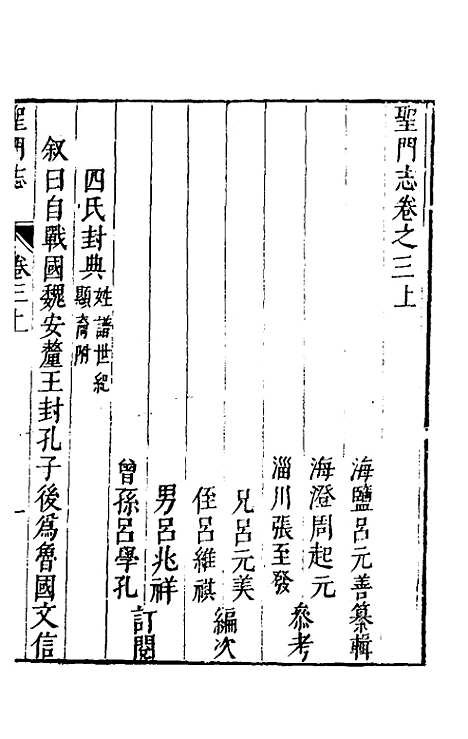 聖門志卷之三上
海鹽呂元善纂輯
海澄周起元
淄川張至發
參考
兄呂元美
侄呂維祺
編次
男呂兆祥
曾孫呂學孔
訂閱
四氏封典
姓譜世紀
顯裔附
叙曰自戰國魏安釐王封孔子後爲魯國文信
聖門志
卷三上
一